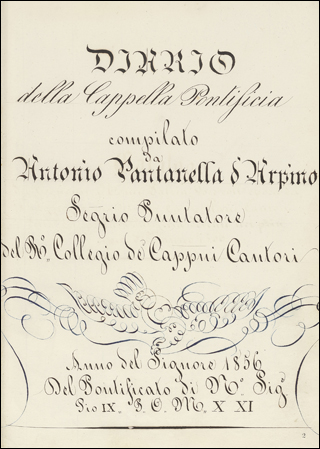 DIARIO
della Cappella Pontificia
compilato
da
Antonio Pantanella d'Arpino
Segrio Puntatore
del Rº. Collegio de Cappni Cantori
Anno del Signore 1856
Del Pontificato di Nº. Sigº
Pio IX. P. O. M. X XI
2